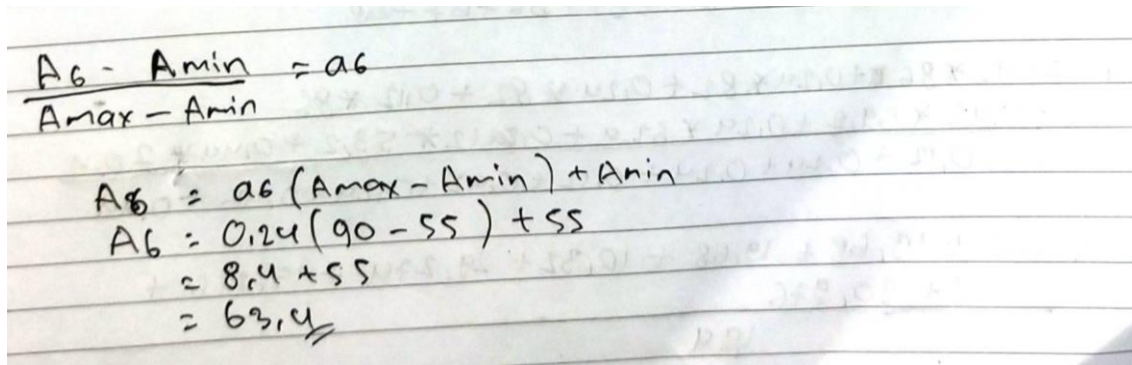 A6 - Amin = a6
Amax - Amin
A6 = a6 (Amax - Amin) + Amin
A6 = 0,24 (90 - 55) + 55
= 8,4 + 55
= 63,4